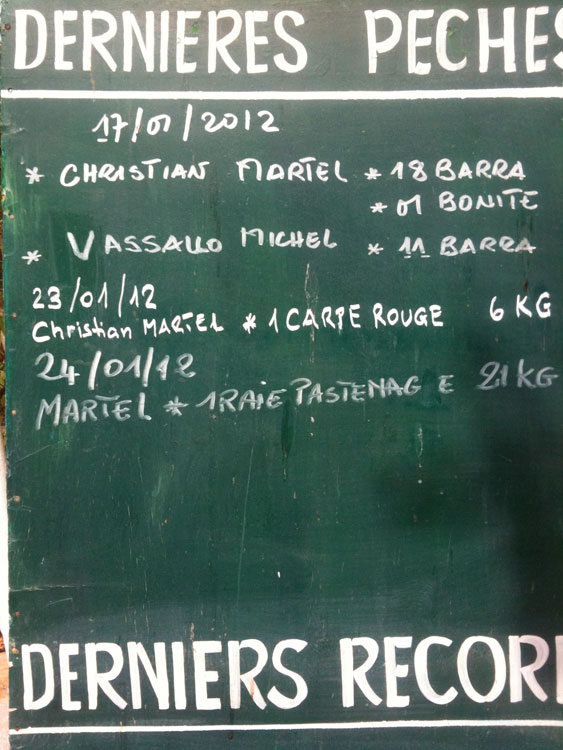 DERNIERES PECHES
17/01/2012
* CHRISTIAN MARTEL * 18 BARRA
* 01 BONITE
* VASSALLO MICHEL * 11 BARRA
23/01/12
Christian MARTEL * 1 CARPE ROUGE 6 KG
24/01/12
MARTEL * 1 RAIE PASTENAG E 21 KG
DERNIERS RECOR